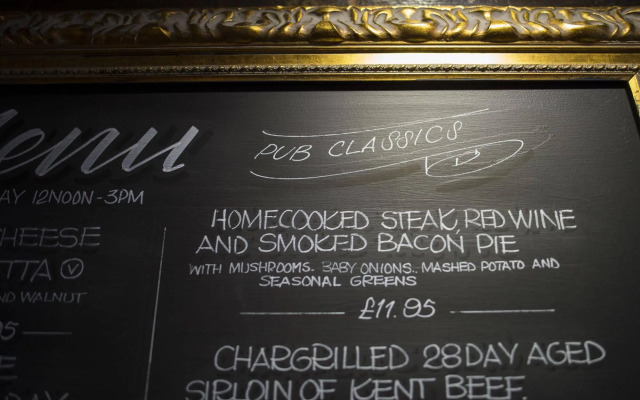 Menu
AY 12NOON-3PM
CHEESE
TTA V
ND WALNUT
PUB CLASSICS
HOMECOOKED STEAK, RED WINE
AND SMOKED BACON PIE
WITH MUSHROOMS. BABY ONIONS.. MASHED POTATO AND
SEASONAL GREENS
£11.95
CHARGRILLED 28 DAY AGED
SIRLOIN OF KENT BEEF.